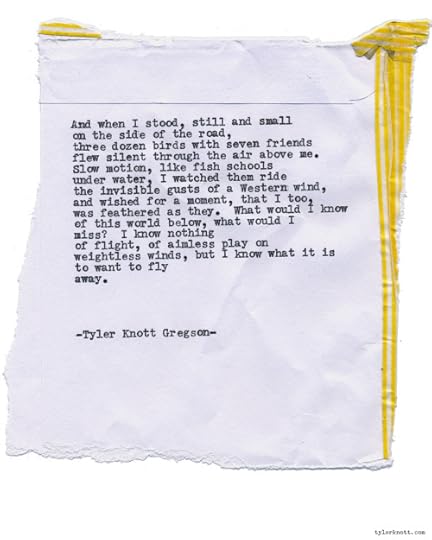 And when I stood, still and small
on the side of the road,
three dozen birds with seven friends
flew silent through the air above me.
Slow motion, like fish schools
under water, I watched them ride
the invisible gusts of a Western wind,
and wished for a moment, that I too,
was feathered as they.  What would I know
of this world below, what would I
miss?  I know nothing
of flight, of aimless play on
weightless winds, but I know what it is
to want to fly
away.
-Tyler Knott Gregson-
tylerknott.com